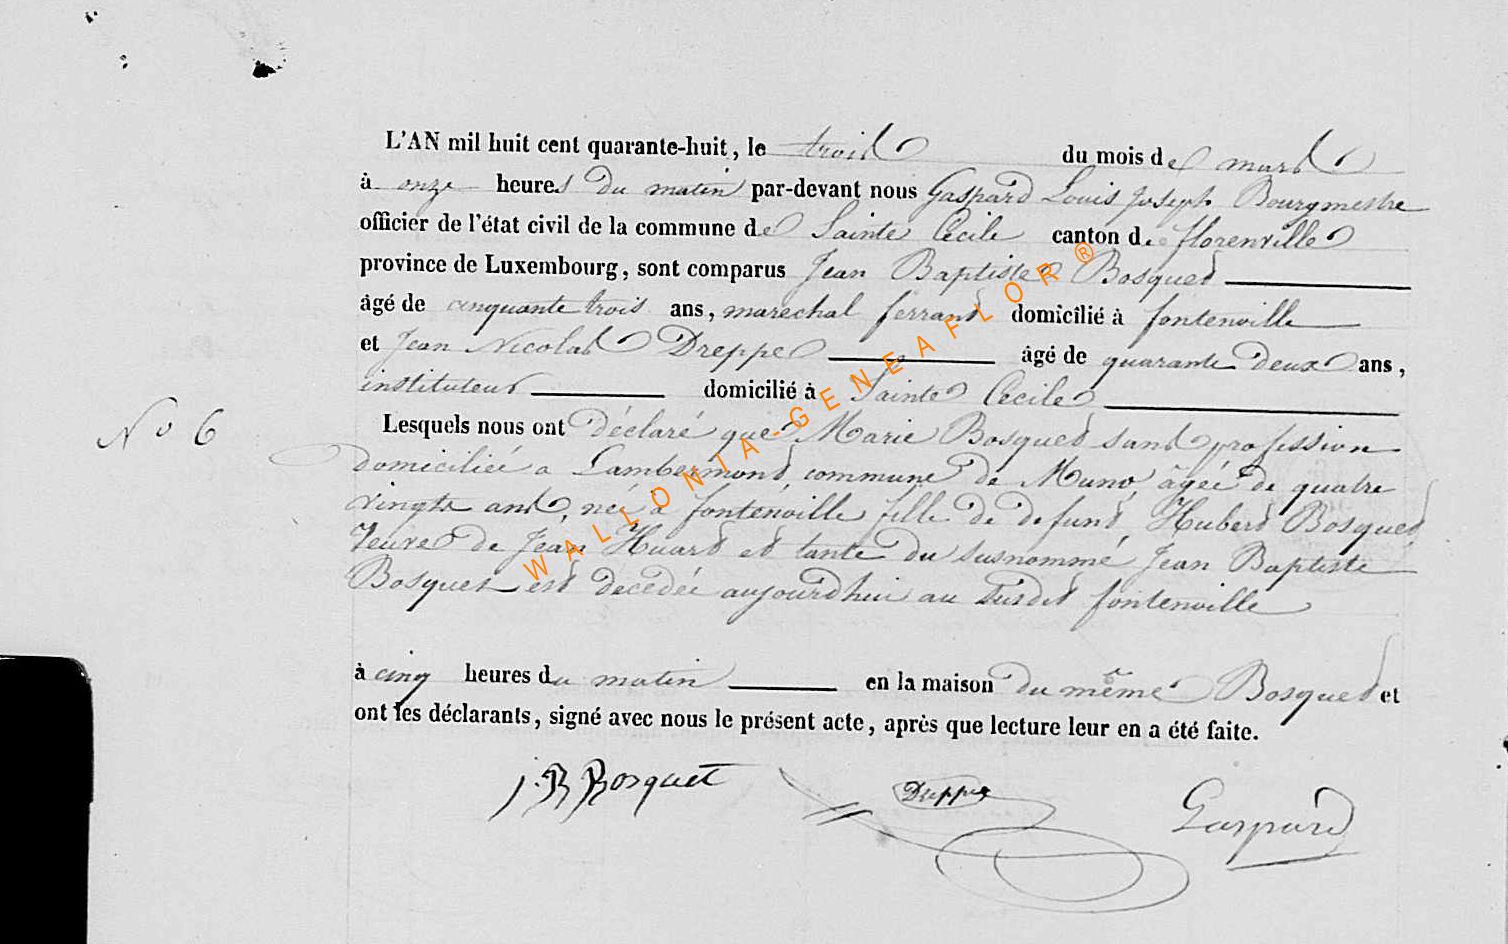 L'AN mil huit cent quarante-huit, le trois du mois de mars
à onze heures du matin par-devant nous Gaspard Louis Joseph Bourgmestre
officier de l'état civil de la commune de Sainte Cécile canton de florenville
province de Luxembourg, sont comparus Jean Baptiste Bosquet
âgé de cinquante trois ans, marechal ferrant domicilié à fontenoille
et Jean Nicolas Dreppe âgé de quarante deux ans,
instituteur domicilié à Sainte Cécile
N° 6
Lesquels nous ont déclaré que Marie Bosquet sans profession
domiciliée a Lambermont, commune de Muno, âgée de quatre
vingts ans, née à fontenoille fille de defunt Hubert Bosquet,
Veuve de Jean Huart et tante du susnommé Jean Baptiste
Bosquet est decedée aujourdhui au susdit fontenoille
à cinq heures du matin en la maison du même Bosquet et
ont les déclarants, signé avec nous le présent acte, après que lecture leur en a été faite.
J. B Bosquet Dreppe Gaspard
WALLONIA-GENEAFLOR ®